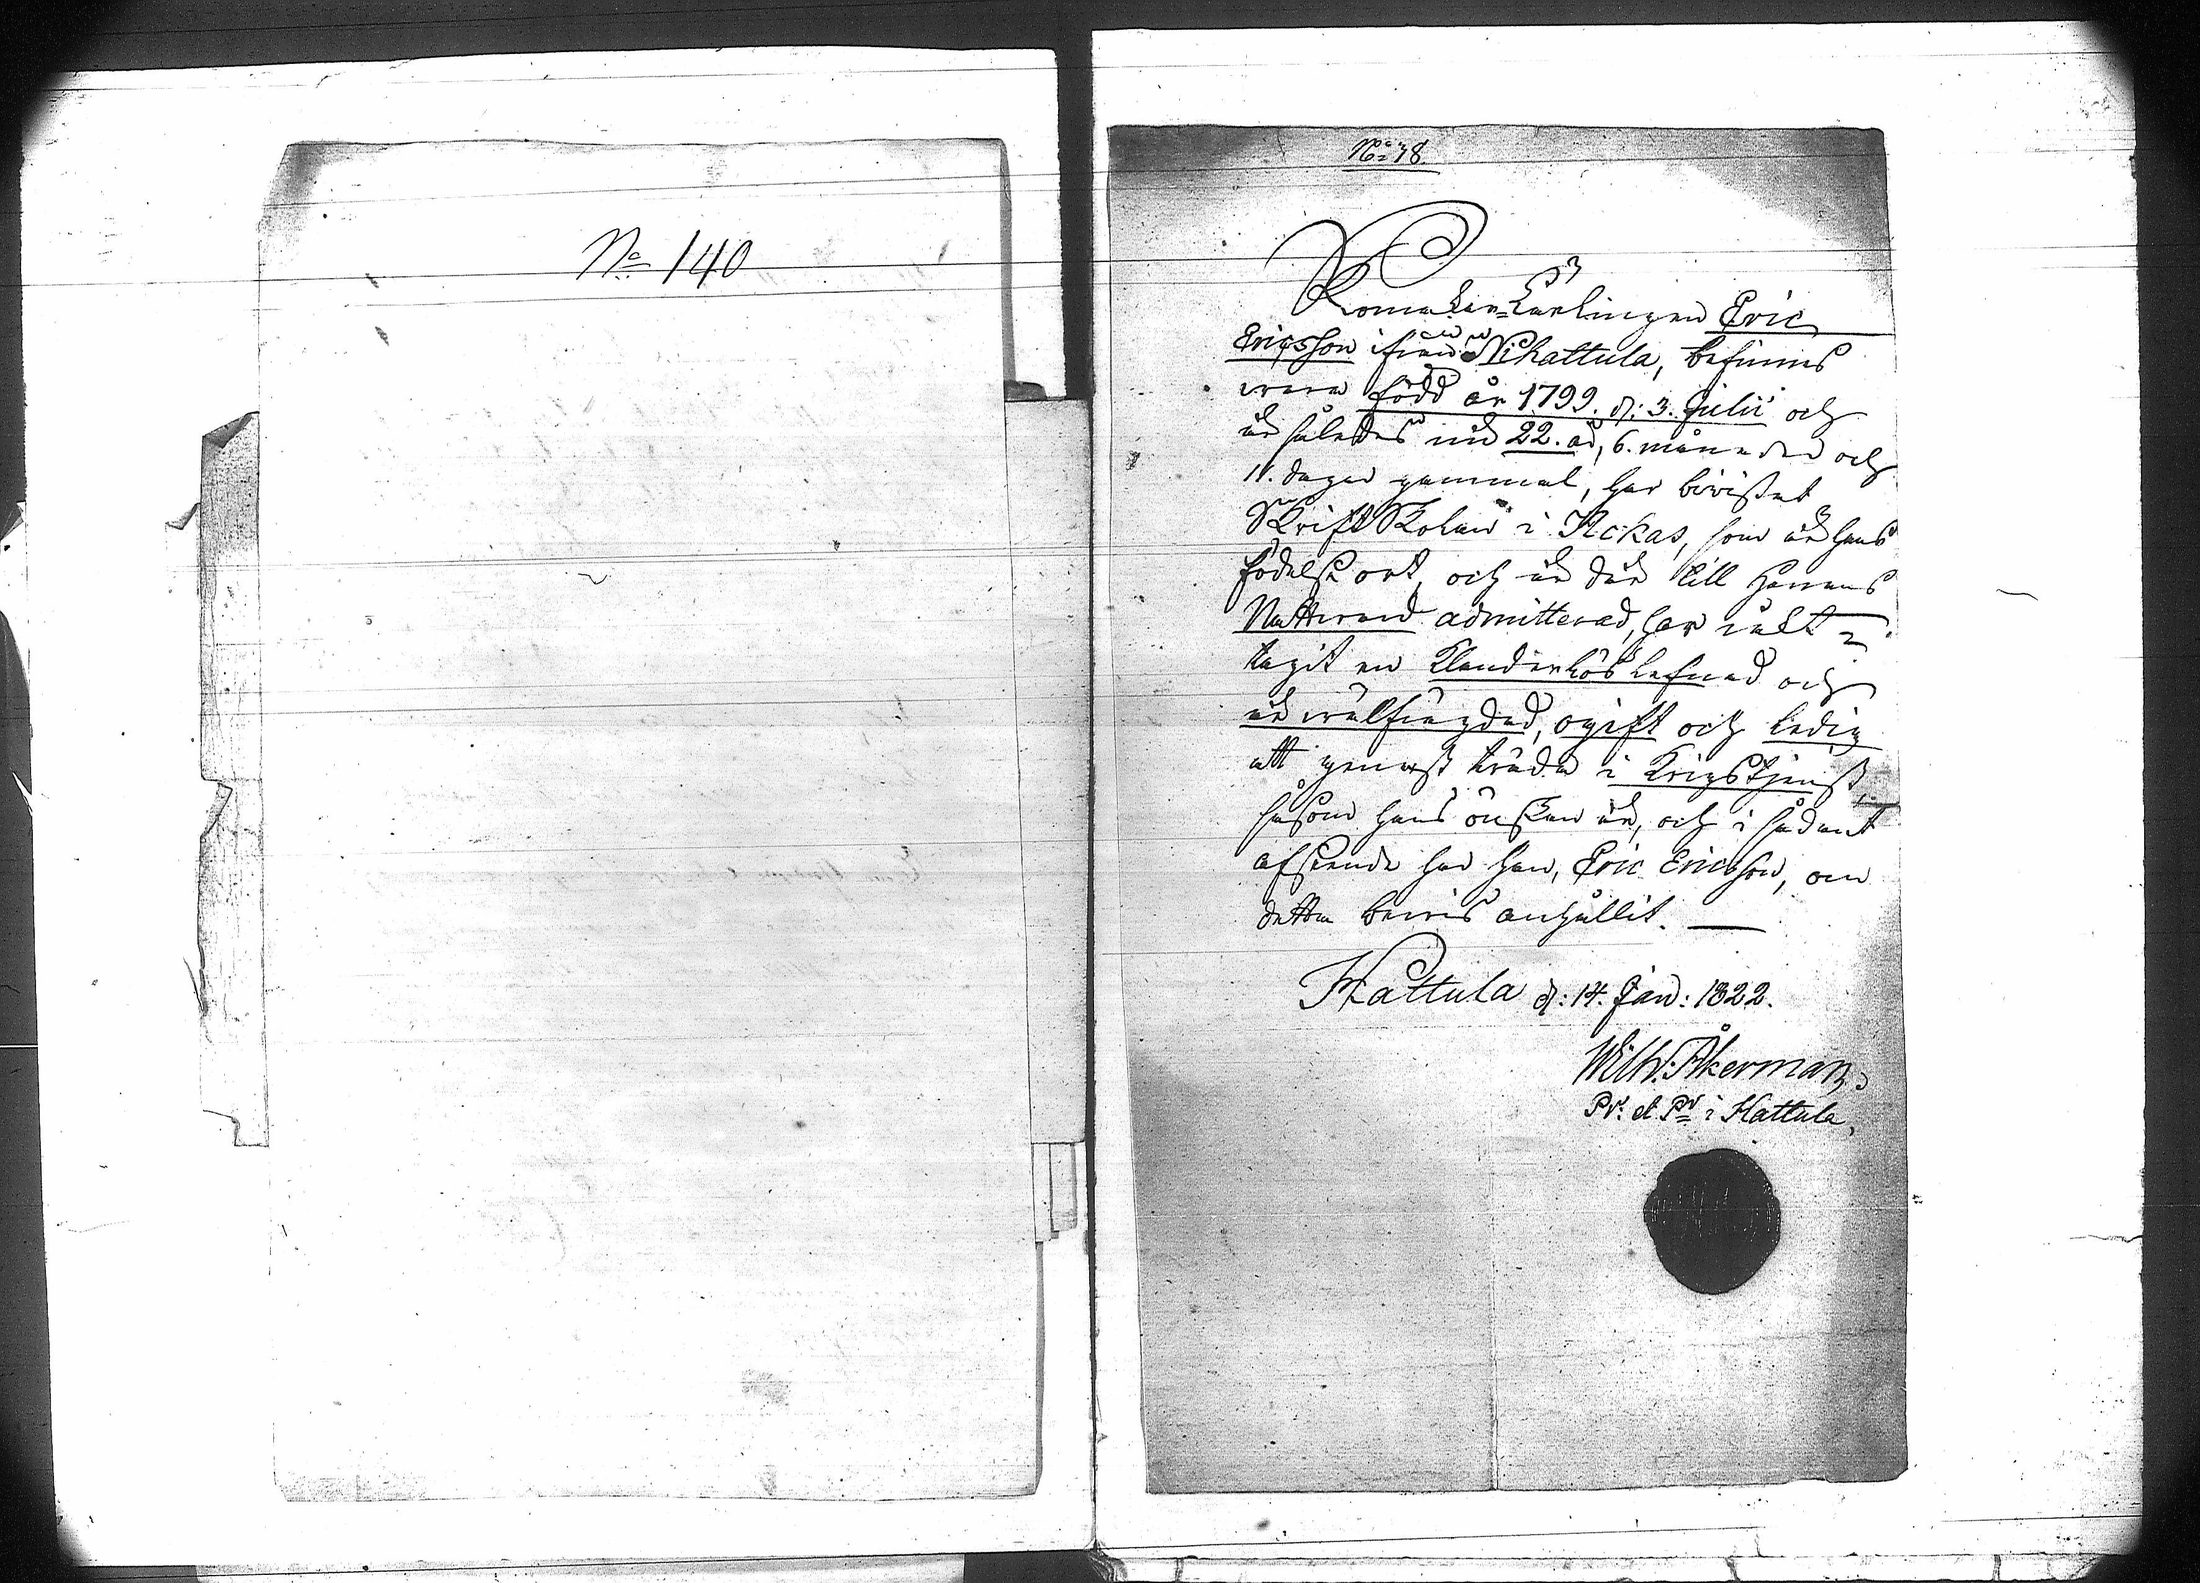 No 140
No 78.
Skomakar-Lärlingen Eric
Ericsson ifrån Nihattula, befinnes
wara född år 1799. d: 3. Julii och
är således nu 22. år, 6. månader och
11. dagar gammal, har biwistat
Skrift Skolan i Ackas, som är hans
födelse ort, och är där till Herrans
Nattward admitterad, har
en klanderlös lefnad och
är wälfrägdad, ogift och ledig
att genast träda i Krigstjenst,
såsom hans önskan är, och i sådant
afseende har han, Eric Ericsson, om
detta bewis anhållit.
Hattula d: 14. Jan: 1822.
Wilh: Åkerman,
Pr: et Pr i Hattula,